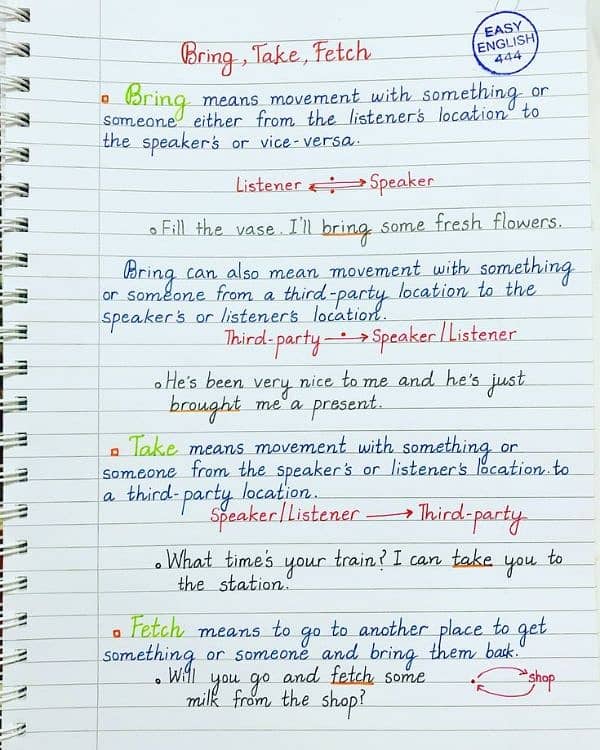 EASY
ENGLISH
444
Bring, Take, Fetch
Bring means movement with something or
someone either from the listener's location to
the speaker's or vice-versa.
Listener Speaker
Fill the vase. I'll bring some fresh flowers.
Bring can also mean movement with something
or someone from a third-party location to the
speaker's or listener's location.
Third-party → Speaker/Listener
He's been very nice to me and he's just
brought me a present.
Take means movement with something or
someone from the speaker's or listener's location to
a third-party location.
Speaker/Listener → Third-party
What time's your train? I can take you to
the station.
Fetch means to go to another place to get
something or someone and bring them back.
Will you go and fetch some
milk from the shop?
shop